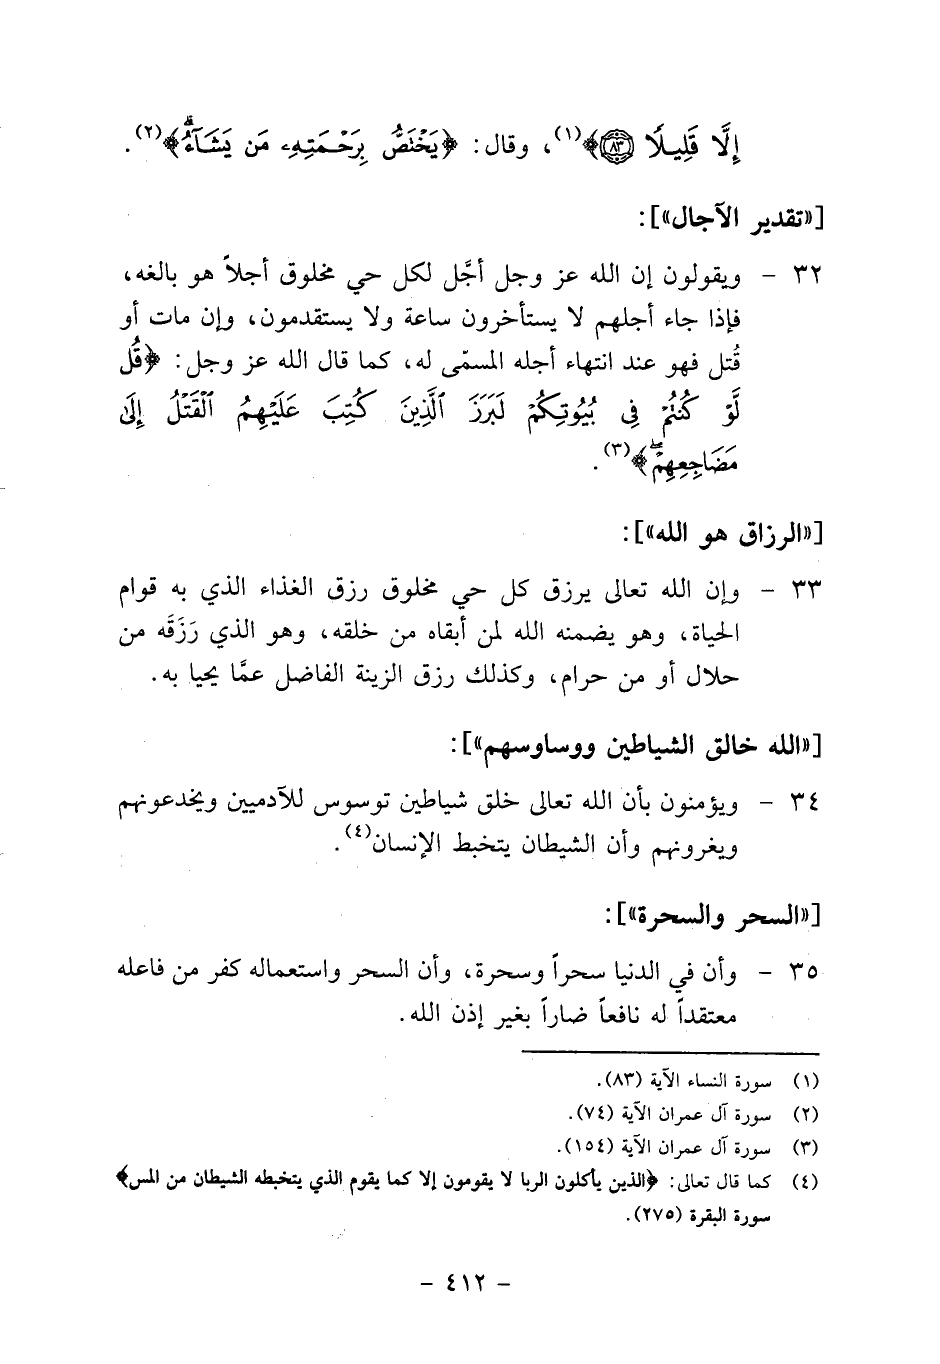 إِلَّا قَلِيلًا ﴿٨٣﴾﴾(١)، وقال: ﴿يَخْتَصُّ بِرَحْمَتِهِۦ مَن يَشَآءُۗ﴾(٢).
[«تقدير الآجال»]:
٣٢ - ويقولون إن الله عز وجل أجَّل لكل حي مخلوق أجلاً هو بالغه،
فإذا جاء أجلهم لا يستأخرون ساعة ولا يستقدمون، وإن مات أو
قُتل فهو عند انتهاء أجله المسمّى له، كما قال الله عز وجل: ﴿قُل
لَّوْ كُنتُمْ فِى بُيُوتِكُمْ لَبَرَزَ ٱلَّذِينَ كُتِبَ عَلَيْهِمُ ٱلْقَتْلُ إِلَىٰ
مَضَاجِعِهِمْۖ﴾(٣).
[«الرزاق هو الله»]:
٣٣ - وإن الله تعالى يرزق كل حي مخلوق رزق الغذاء الذي به قوام
الحياة، وهو يضمنه الله لمن أبقاه من خلقه، وهو الذي رَزَقَه من
حلال أو من حرام، وكذلك رزق الزينة الفاضل عمَّا يحيا به.
[«الله خالق الشياطين ووساوسهم»]:
٣٤ - ويؤمنون بأن الله تعالى خلق شياطين توسوس للآدميين ويخدعونهم
ويغرونهم وأن الشيطان يتخبط الإنسان(٤).
[«السحر والسحرة»]:
٣٥ - وأن في الدنيا سحراً وسحرة، وأن السحر واستعماله كفر من فاعله
معتقداً له نافعاً ضاراً بغير إذن الله.
(١) سورة النساء الآية (٨٣).
(٢) سورة آل عمران الآية (٧٤).
(٣) سورة آل عمران الآية (١٥٤).
(٤) كما قال تعالى: ﴿الذين يأكلون الربا لا يقومون إلا كما يقوم الذي يتخبطه الشيطان من المس﴾
سورة البقرة (٢٧٥).
- ٤١٢ -